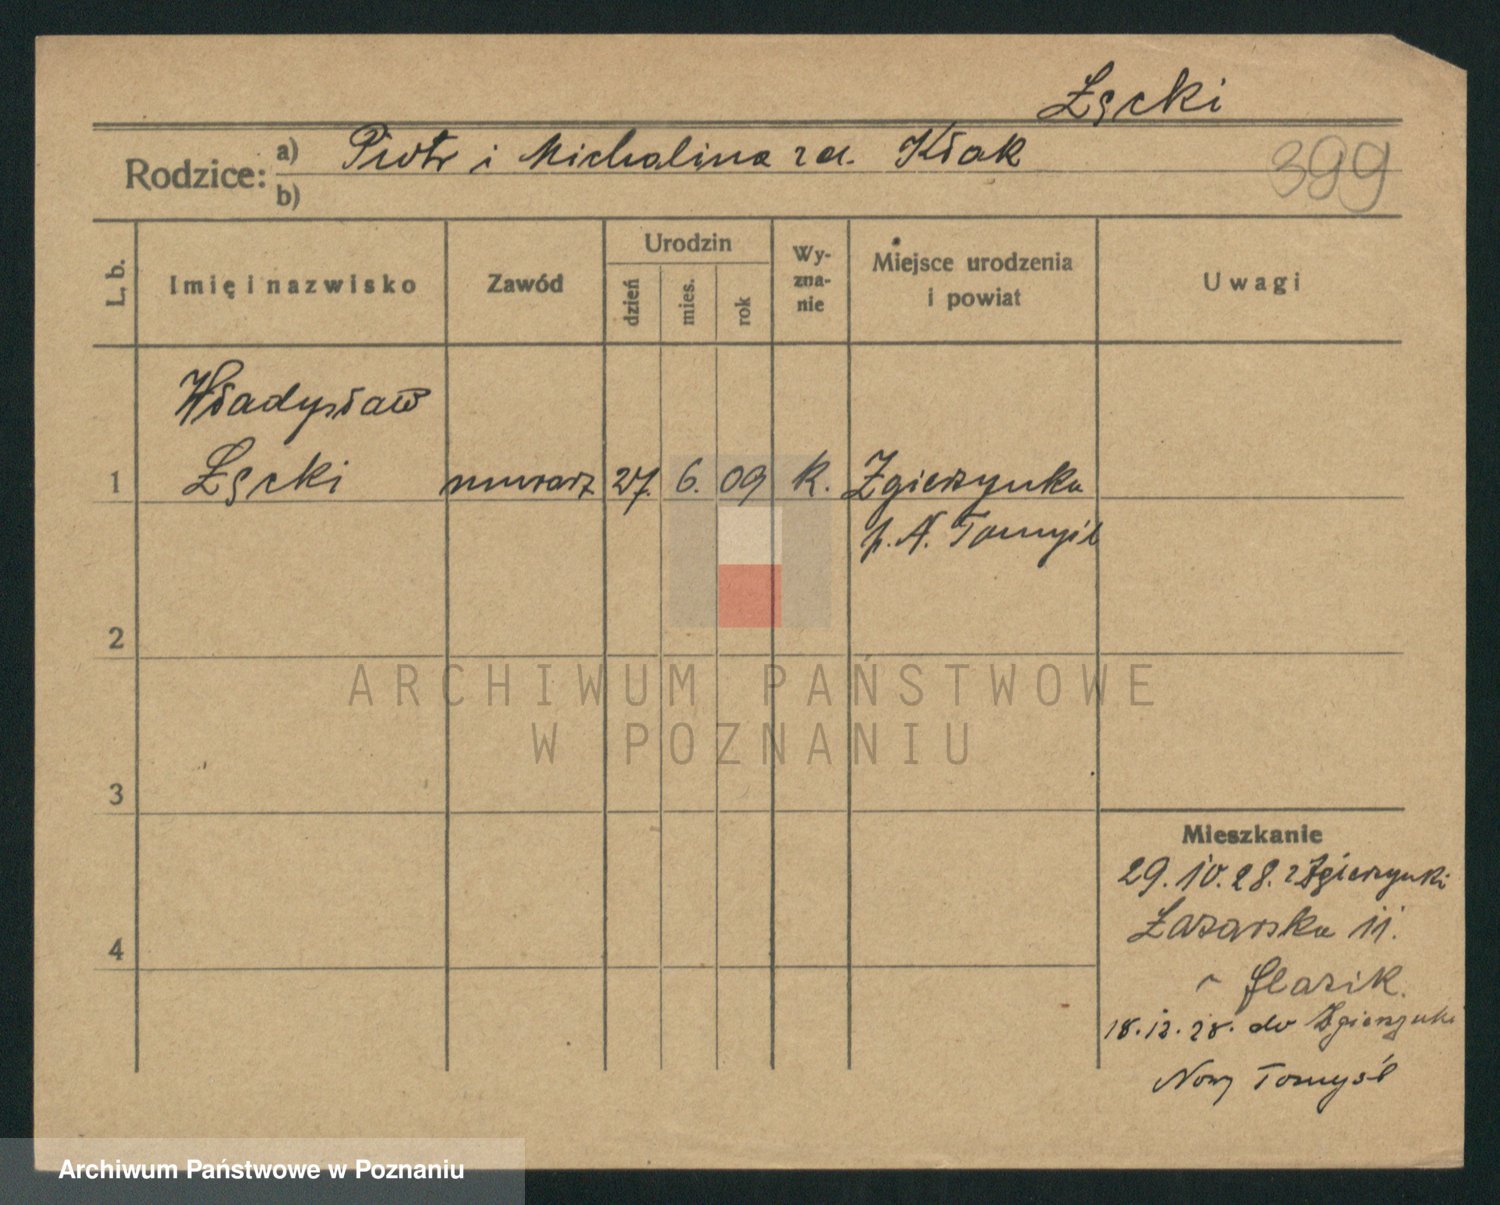 Łącki
Rodzice: a) Piotr i Michalina zd. Kłak
b)
399
L. b.
Imię i nazwisko
Zawód
Urodzin
dzień
mies.
rok
Wy-
zna-
nie
Miejsce urodzenia
i powiat
Uwagi
Władysław
1 Łącki murarz 27. 6. 09 k. Zgierzynka
p. N. Tomyśl
2
3
4
Mieszkanie
29.10.28. z Zgierzynki
Łazarska 11.
Glazik.
18.12.28. do Zgierzynki
Nowy Tomyśl
ARCHIWUM PAŃSTWOWE
W POZNANIU
Archiwum Państwowe w Poznaniu